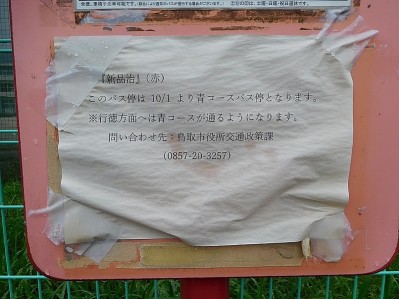 『新品治』(赤)
このバス停は 10/1 より青コースバス停となります。
※行徳方面へは青コースが通るようになります。
問い合わせ先：鳥取市役所交通政策課
(0857-20-3257)